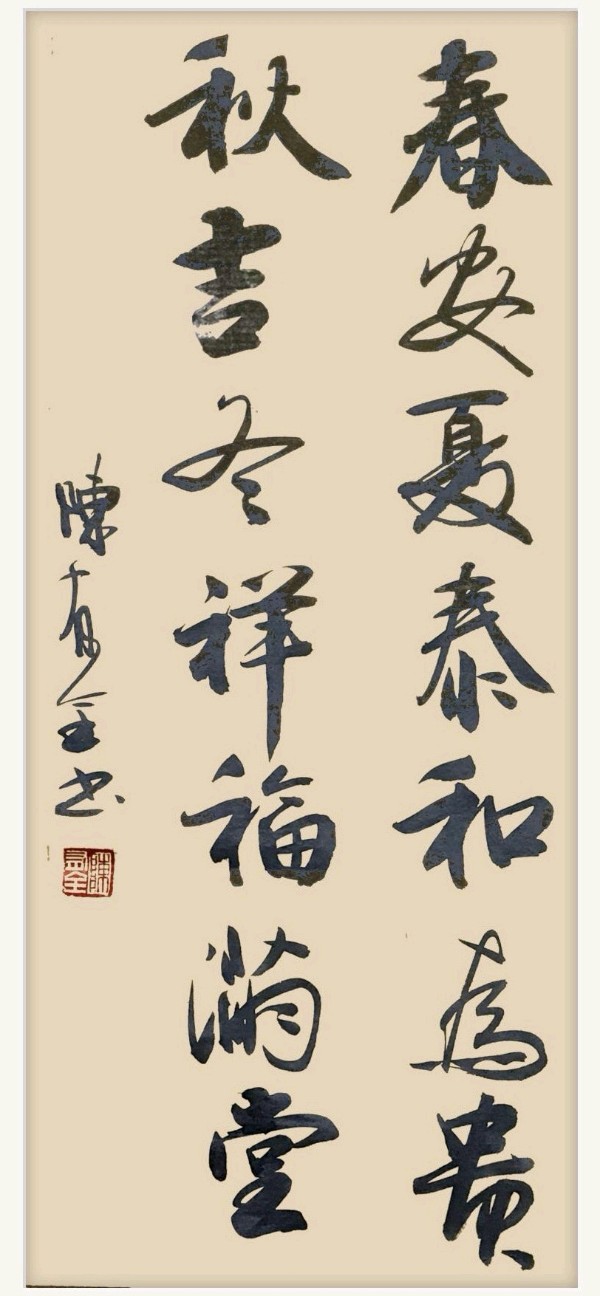 春安夏泰和為貴
秋吉冬祥福滿堂
陳有全书
陳有全